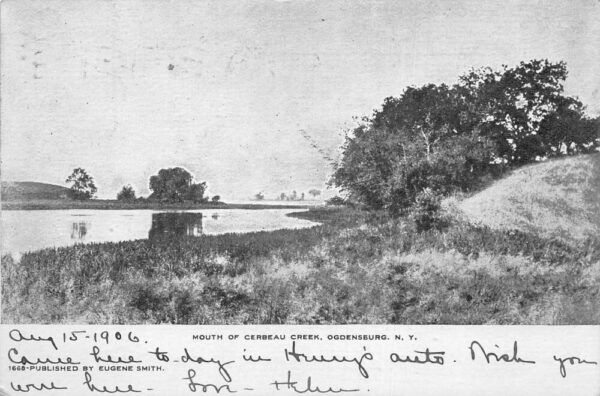 Aug 15-1906.
MOUTH OF CERBEAU CREEK, OGDENSBURG, N. Y.
Came here to-day in auto. Wish you
1668-PUBLISHED BY EUGENE SMITH.
were here - Love - Helen.